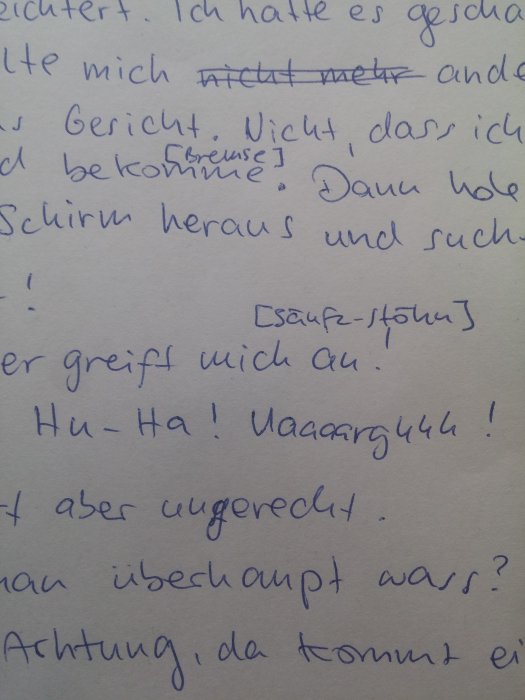 eichtert. Ich hatte es gescha
lte mich nicht mehr ande
s Gericht. Nicht, dass ich
[Bremse]
d bekomme. Dann hole
Schirm heraus und such
!
[Säufz-stöhn]
er greift mich an!
Hu-Ha! Uaaaarghhh!
t aber ungerecht.
man überhaupt wass?
Achtung, da kommt ei